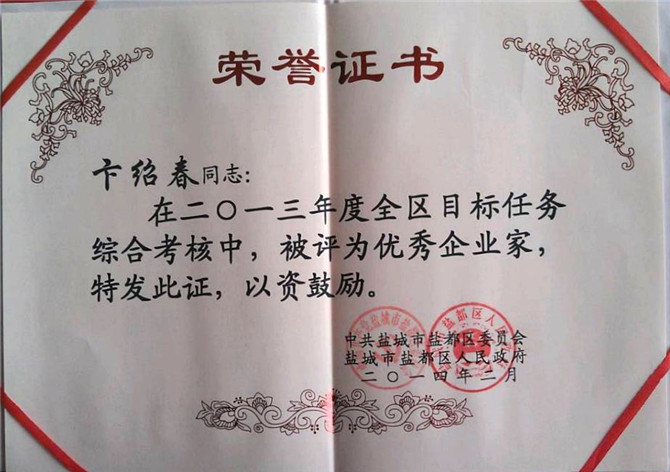 荣誉证书
卞绍春同志：
在二〇一三年度全区目标任务
综合考核中，被评为优秀企业家，
特发此证，以资鼓励。
中共盐城市盐都区委员会
盐城市盐都区人民政府
二〇一四年二月